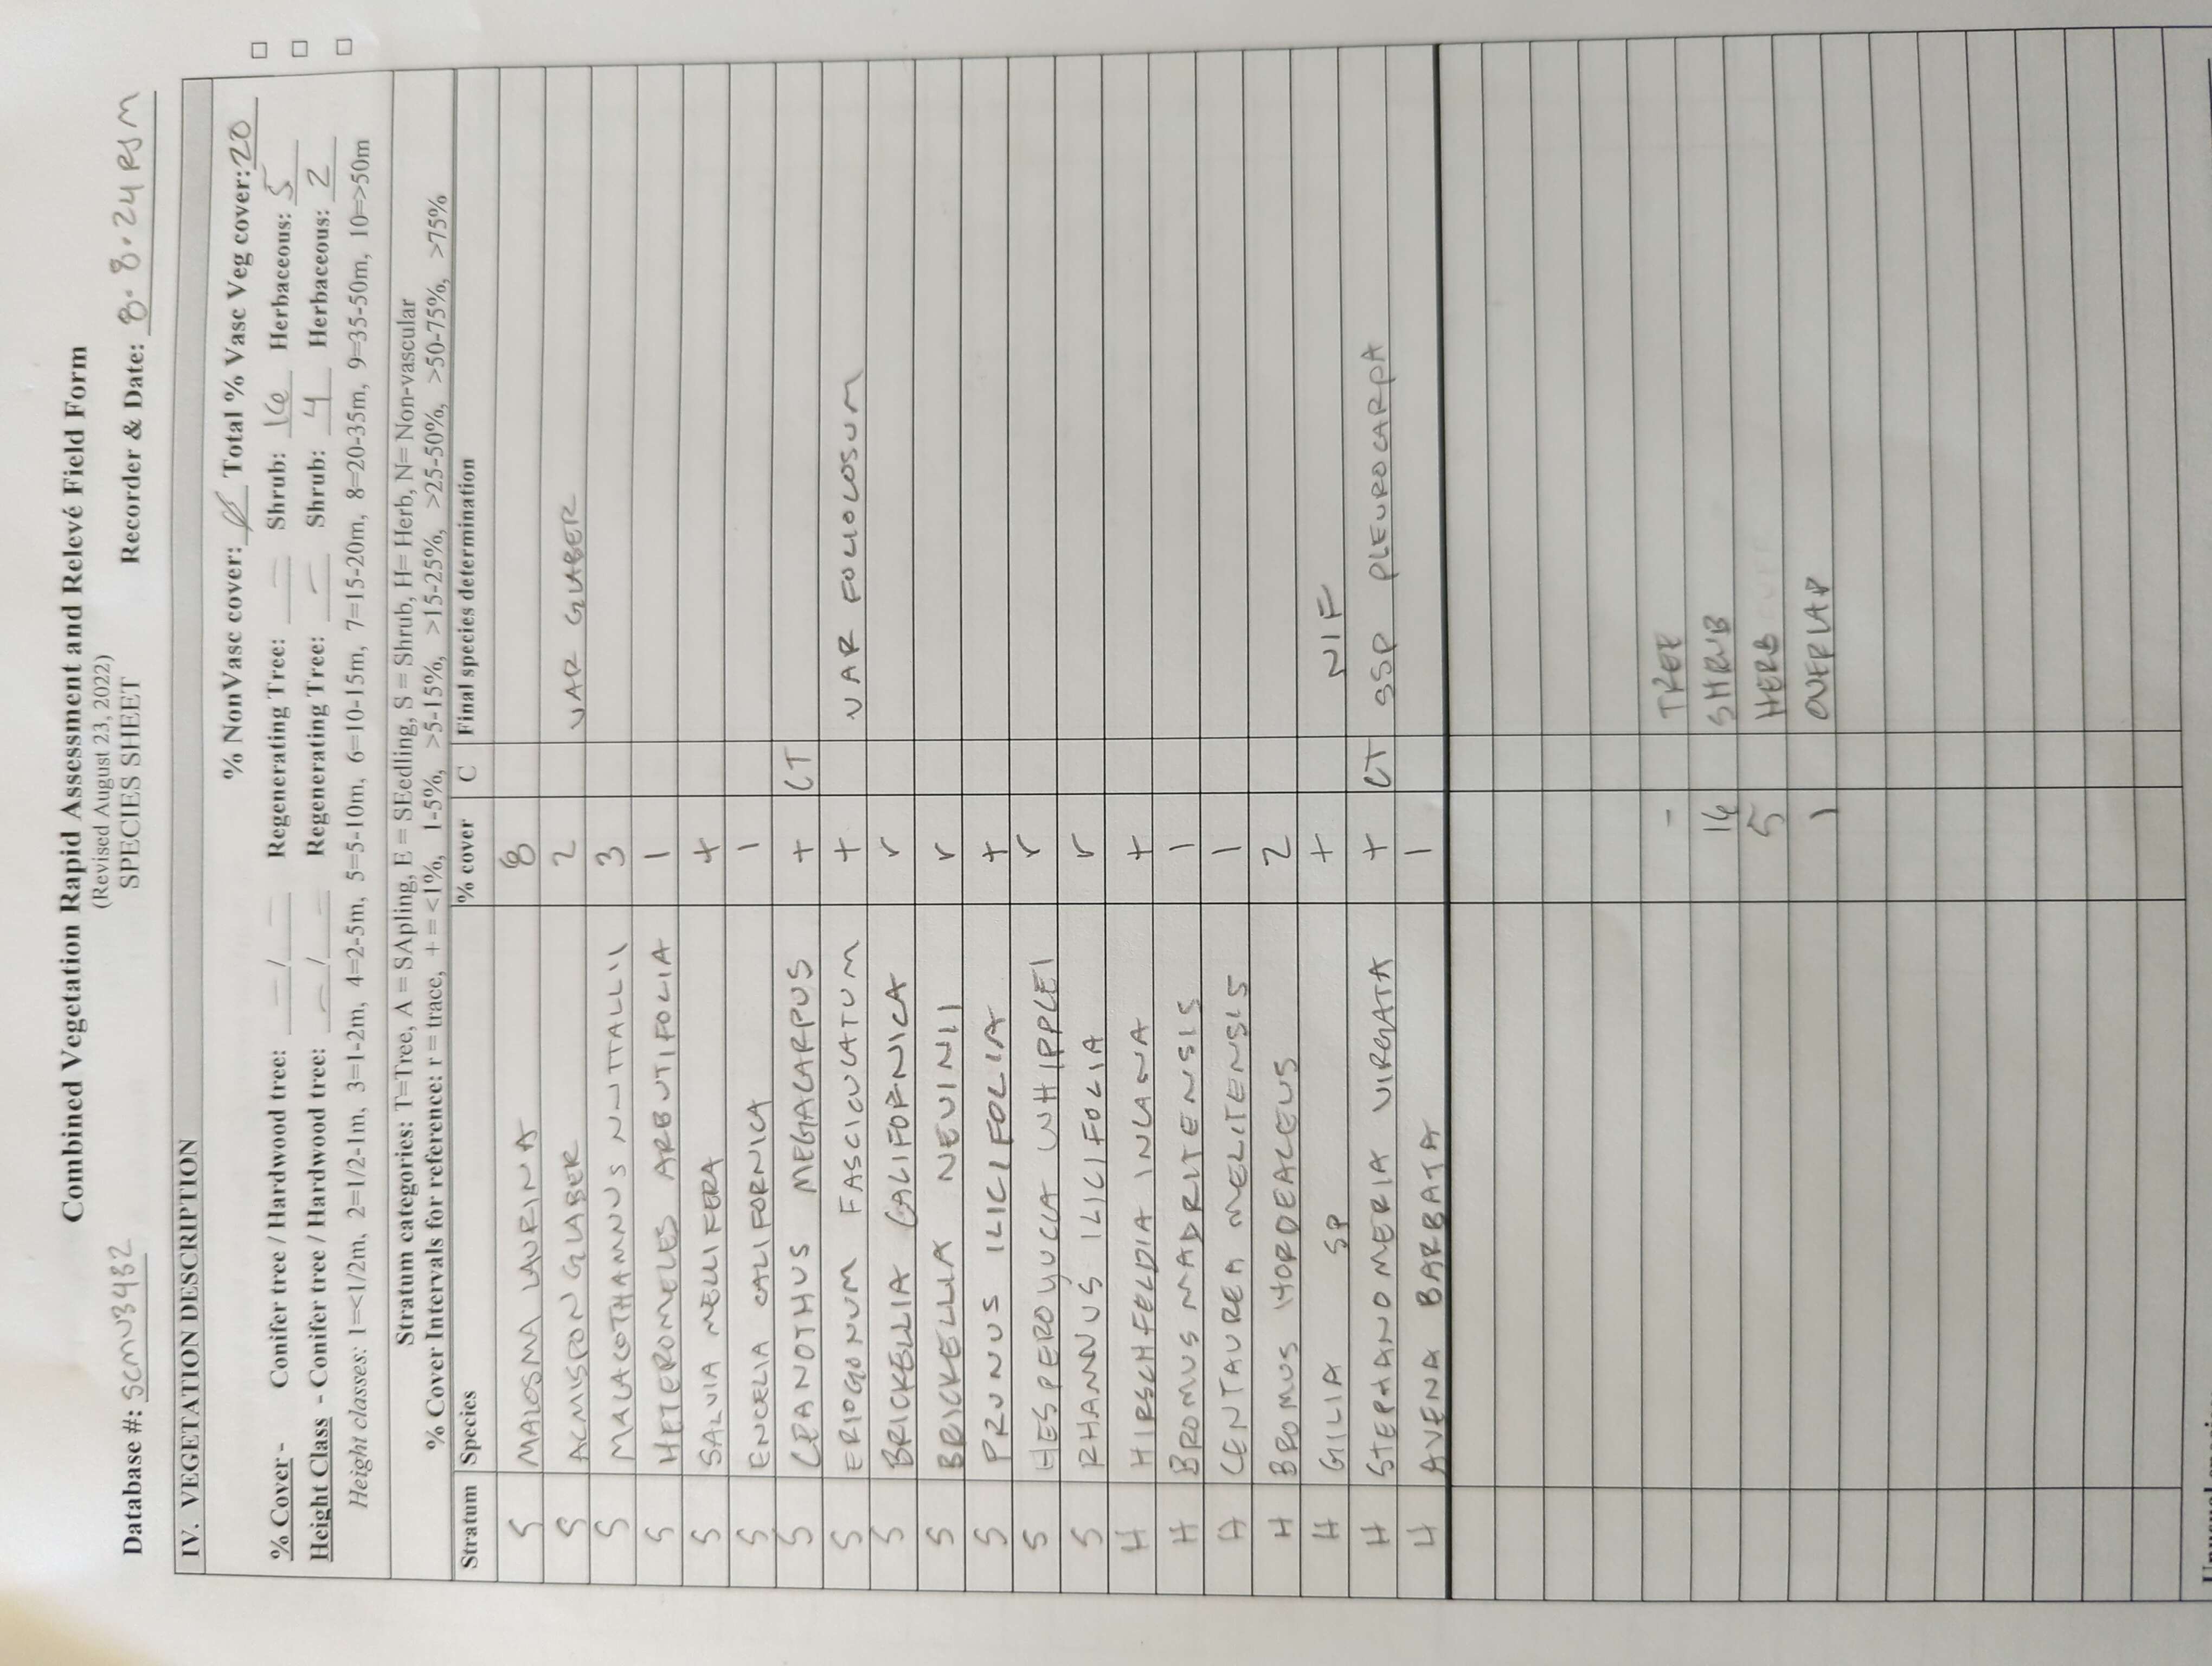 Combined Vegetation Rapid Assessment and Relevé Field Form
(Revised August 23, 2022)
SPECIES SHEET
Database #: SCMU3432 Recorder & Date: 8.8.24 RJM
IV. VEGETATION DESCRIPTION
% NonVasc cover: Total % Vasc Veg cover: 20
% Cover - Conifer tree / Hardwood tree: – / – Regenerating Tree: – Shrub: 16 Herbaceous: 5
Height Class - Conifer tree / Hardwood tree: – / – Regenerating Tree: – Shrub: 4 Herbaceous: 2
Height classes: 1=<1/2m, 2=1/2-1m, 3=1-2m, 4=2-5m, 5=5-10m, 6=10-15m, 7=15-20m, 8=20-35m, 9=35-50m, 10=>50m
Stratum categories: T=Tree, A = SApling, E = SEedling, S = Shrub, H= Herb, N= Non-vascular
% Cover Intervals for reference: r = trace, + = <1%, 1-5%, >5-15%, >15-25%, >25-50%, >50-75%, >75%
Stratum Species % cover C Final species determination
S MALOSMA LAURINA 8
S ACMISPON GLABER 2 VAR GLABER
S MALACOTHAMNUS NUTTALLII 3
S HETEROMELES ARBUTIFOLIA 1
S SALVIA MELLIFERA +
S ENCELIA CALIFORNICA 1
S CEANOTHUS MEGACARPUS + CT
S ERIOGONUM FASCICULATUM + VAR FOLIOLOSUM
S BRICKELLIA CALIFORNICA r
S BRICKELLIA NEVINII r
S PRUNUS ILICIFOLIA +
S HESPEROYUCCA WHIPPLEI r
S RHAMNUS ILICIFOLIA r
H HIRSCHFELDIA INCANA +
H BROMUS MADRITENSIS 1
H CENTAUREA MELITENSIS 1
H BROMUS HORDEACEUS 2
H GILIA SP + NIF
H STEPHANOMERIA VIRGATA + CT SSP PLEUROCARPA
H AVENA BARBATA 1
– TREE
16 SHRUB
5 HERB
1 OVERLAP